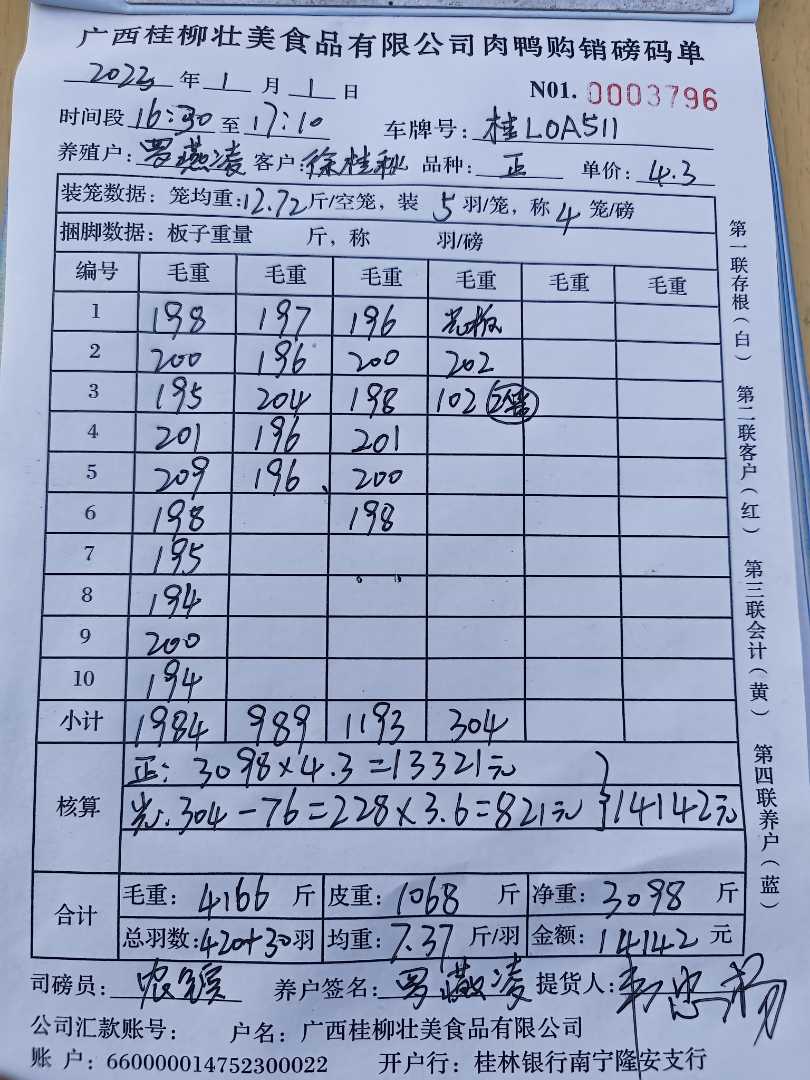 广西桂柳壮美食品有限公司肉鸭购销磅码单
2023 年 1 月 1 日 N01. 0003796
时间段 16:30 至 17:10 车牌号: 桂L0A511
养殖户: 罗燕凌 客户: 徐桂秋 品种: 正 单价: 4.3
装笼数据: 笼均重: 12.72 斤/空笼, 装 5 羽/笼, 称 4 笼/磅
捆脚数据: 板子重量 斤, 称 羽/磅
编号 毛重 毛重 毛重 毛重 毛重 毛重
1 198 197 196 光板
2 200 196 200 202
3 195 204 198 102
4 201 196 201
5 209 196 200
6 198 198
7 195
8 194
9 200
10 194
小计 1984 989 1193 304
核算
正: 3098×4.3=13321元
光: 304-76=228×3.6=821元 } 14142元
合计
毛重: 4166 斤 皮重: 1068 斤 净重: 3098 斤
总羽数: 420+30羽 均重: 7.37 斤/羽 金额: 14142 元
司磅员: 养户签名: 罗燕凌 提货人:
公司汇款账号: 户名: 广西桂柳壮美食品有限公司
账户: 660000014752300022 开户行: 桂林银行南宁隆安支行
第一联存根(白)
第二联客户(红)
第三联会计(黄)
第四联养户(蓝)